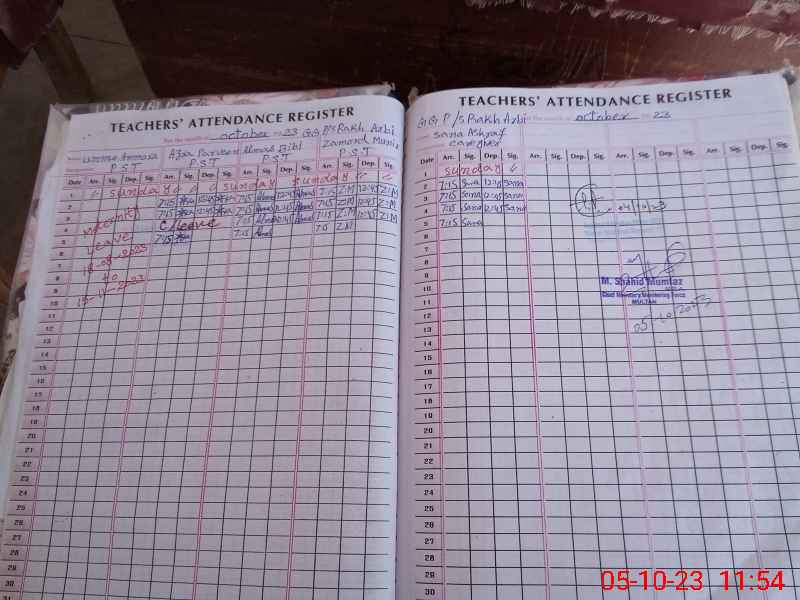 TEACHERS' ATTENDANCE REGISTER
For the month of october 20 23 GG P/S Rakh Arbi
P.S.T P.S.T P.S.T P.S.T
Date Arr. Sig. Dep. Sig. Arr. Sig. Dep. Sig. Arr. Sig. Dep. Sig. Arr. Sig. Dep. Sig.
1 sunday sunday sunday
2 7:15 12:45 7:15 12:45 7:15 Z.M 12:45 Z.M
3 7:15 12:45 7:15 12:45 7:15 Z.M 12:45 Z.M
4 C/Leave 7:15 12:45 7:15 Z.M 12:45 Z.M
5 7:15 7:15 7:5 Z.M
Leave
18-08-2023
to
15-11-2023
6
7
8
9
10
11
12
13
14
15
16
17
18
19
20
21
22
23
24
25
26
27
28
29
30
31
TEACHERS' ATTENDANCE REGISTER
GG P/S Rakh Arbi For the month of october 20 23
Sana Ashraf
Caregiver
Date Arr. Sig. Dep. Sig. Arr. Sig. Dep. Sig. Arr. Sig. Dep. Sig. Arr. Sig. Dep. Sig.
1 sunday
2 7:15 Sana 12:45 Sana
3 7:15 Sana 12:45 Sana
4 7:15 Sana 12:45 Sana 04/10/23
5 7:15 Sana
6
7
8
9
10
M. Shahid Mumtaz
MULTAN
05/10/2023
11
12
13
14
15
16
17
18
19
20
21
22
23
24
25
26
27
28
29
30
05-10-23 11:54